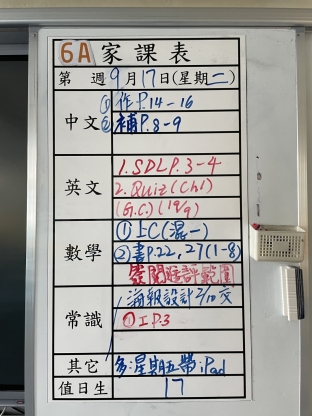 6A 家課表
第 週 9月17日(星期二)
中文 ①作P.14-16
②補P.8-9
英文 1.SDLP.3-4
2.Quiz(Ch1)
(G.C.)(19/9)
數學 ①上C(混一)
②書P.22,27(1-8)
圈閱進評範圍
常識 海報設計2/10交
①IP.3
其它 多:星期五帶iPad
值日生 17